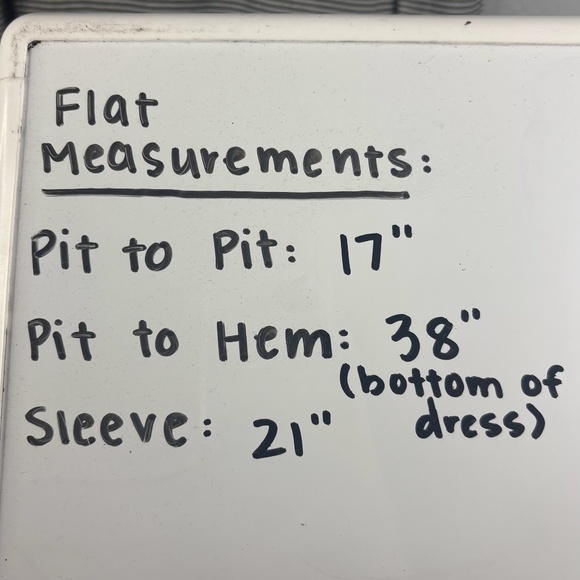 Flat
Measurements:
Pit to Pit: 17"
Pit to Hem: 38"
(bottom of
dress)
Sleeve: 21"